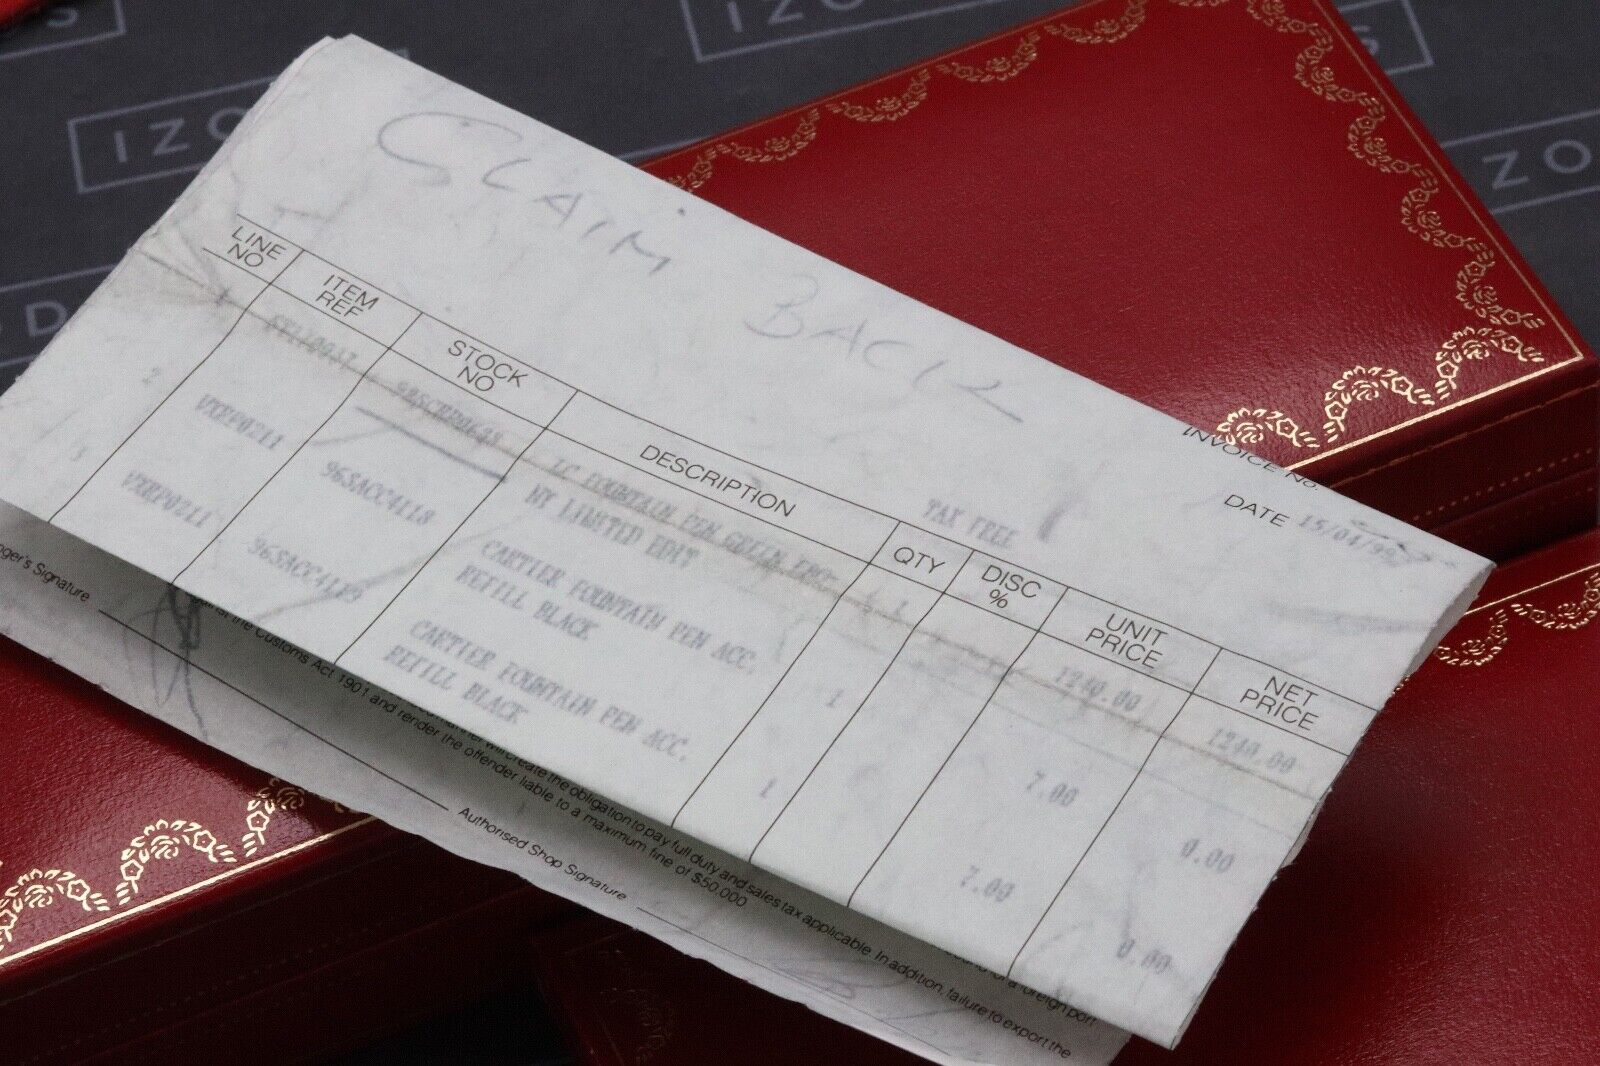 CLAIM BACK
INVOICE No.
DATE 15/04/99
TAX FREE
LINE NO
ITEM REF
STOCK NO
DESCRIPTION
QTY
DISC %
UNIT PRICE
NET PRICE
1 LC FOUNTAIN PEN GREEN 1 1240.00 1240.00
NY LIMITED EDIT
2 VXHP0211 96SACC4118 CARTIER FOUNTAIN PEN ACC. 1 7.00 0.00
REFILL BLACK
3 VXHP0211 96SACC4119 CARTIER FOUNTAIN PEN ACC. 1 7.00 0.00
REFILL BLACK
Signature
the Customs Act 1901 and render the offender liable to a maximum fine of $50,000
will create the obligation to pay full duty and sales tax applicable. In addition, failure to export the
of a foreign port
Authorised Shop Signature
IZO
IZO
S
S
ZO
D